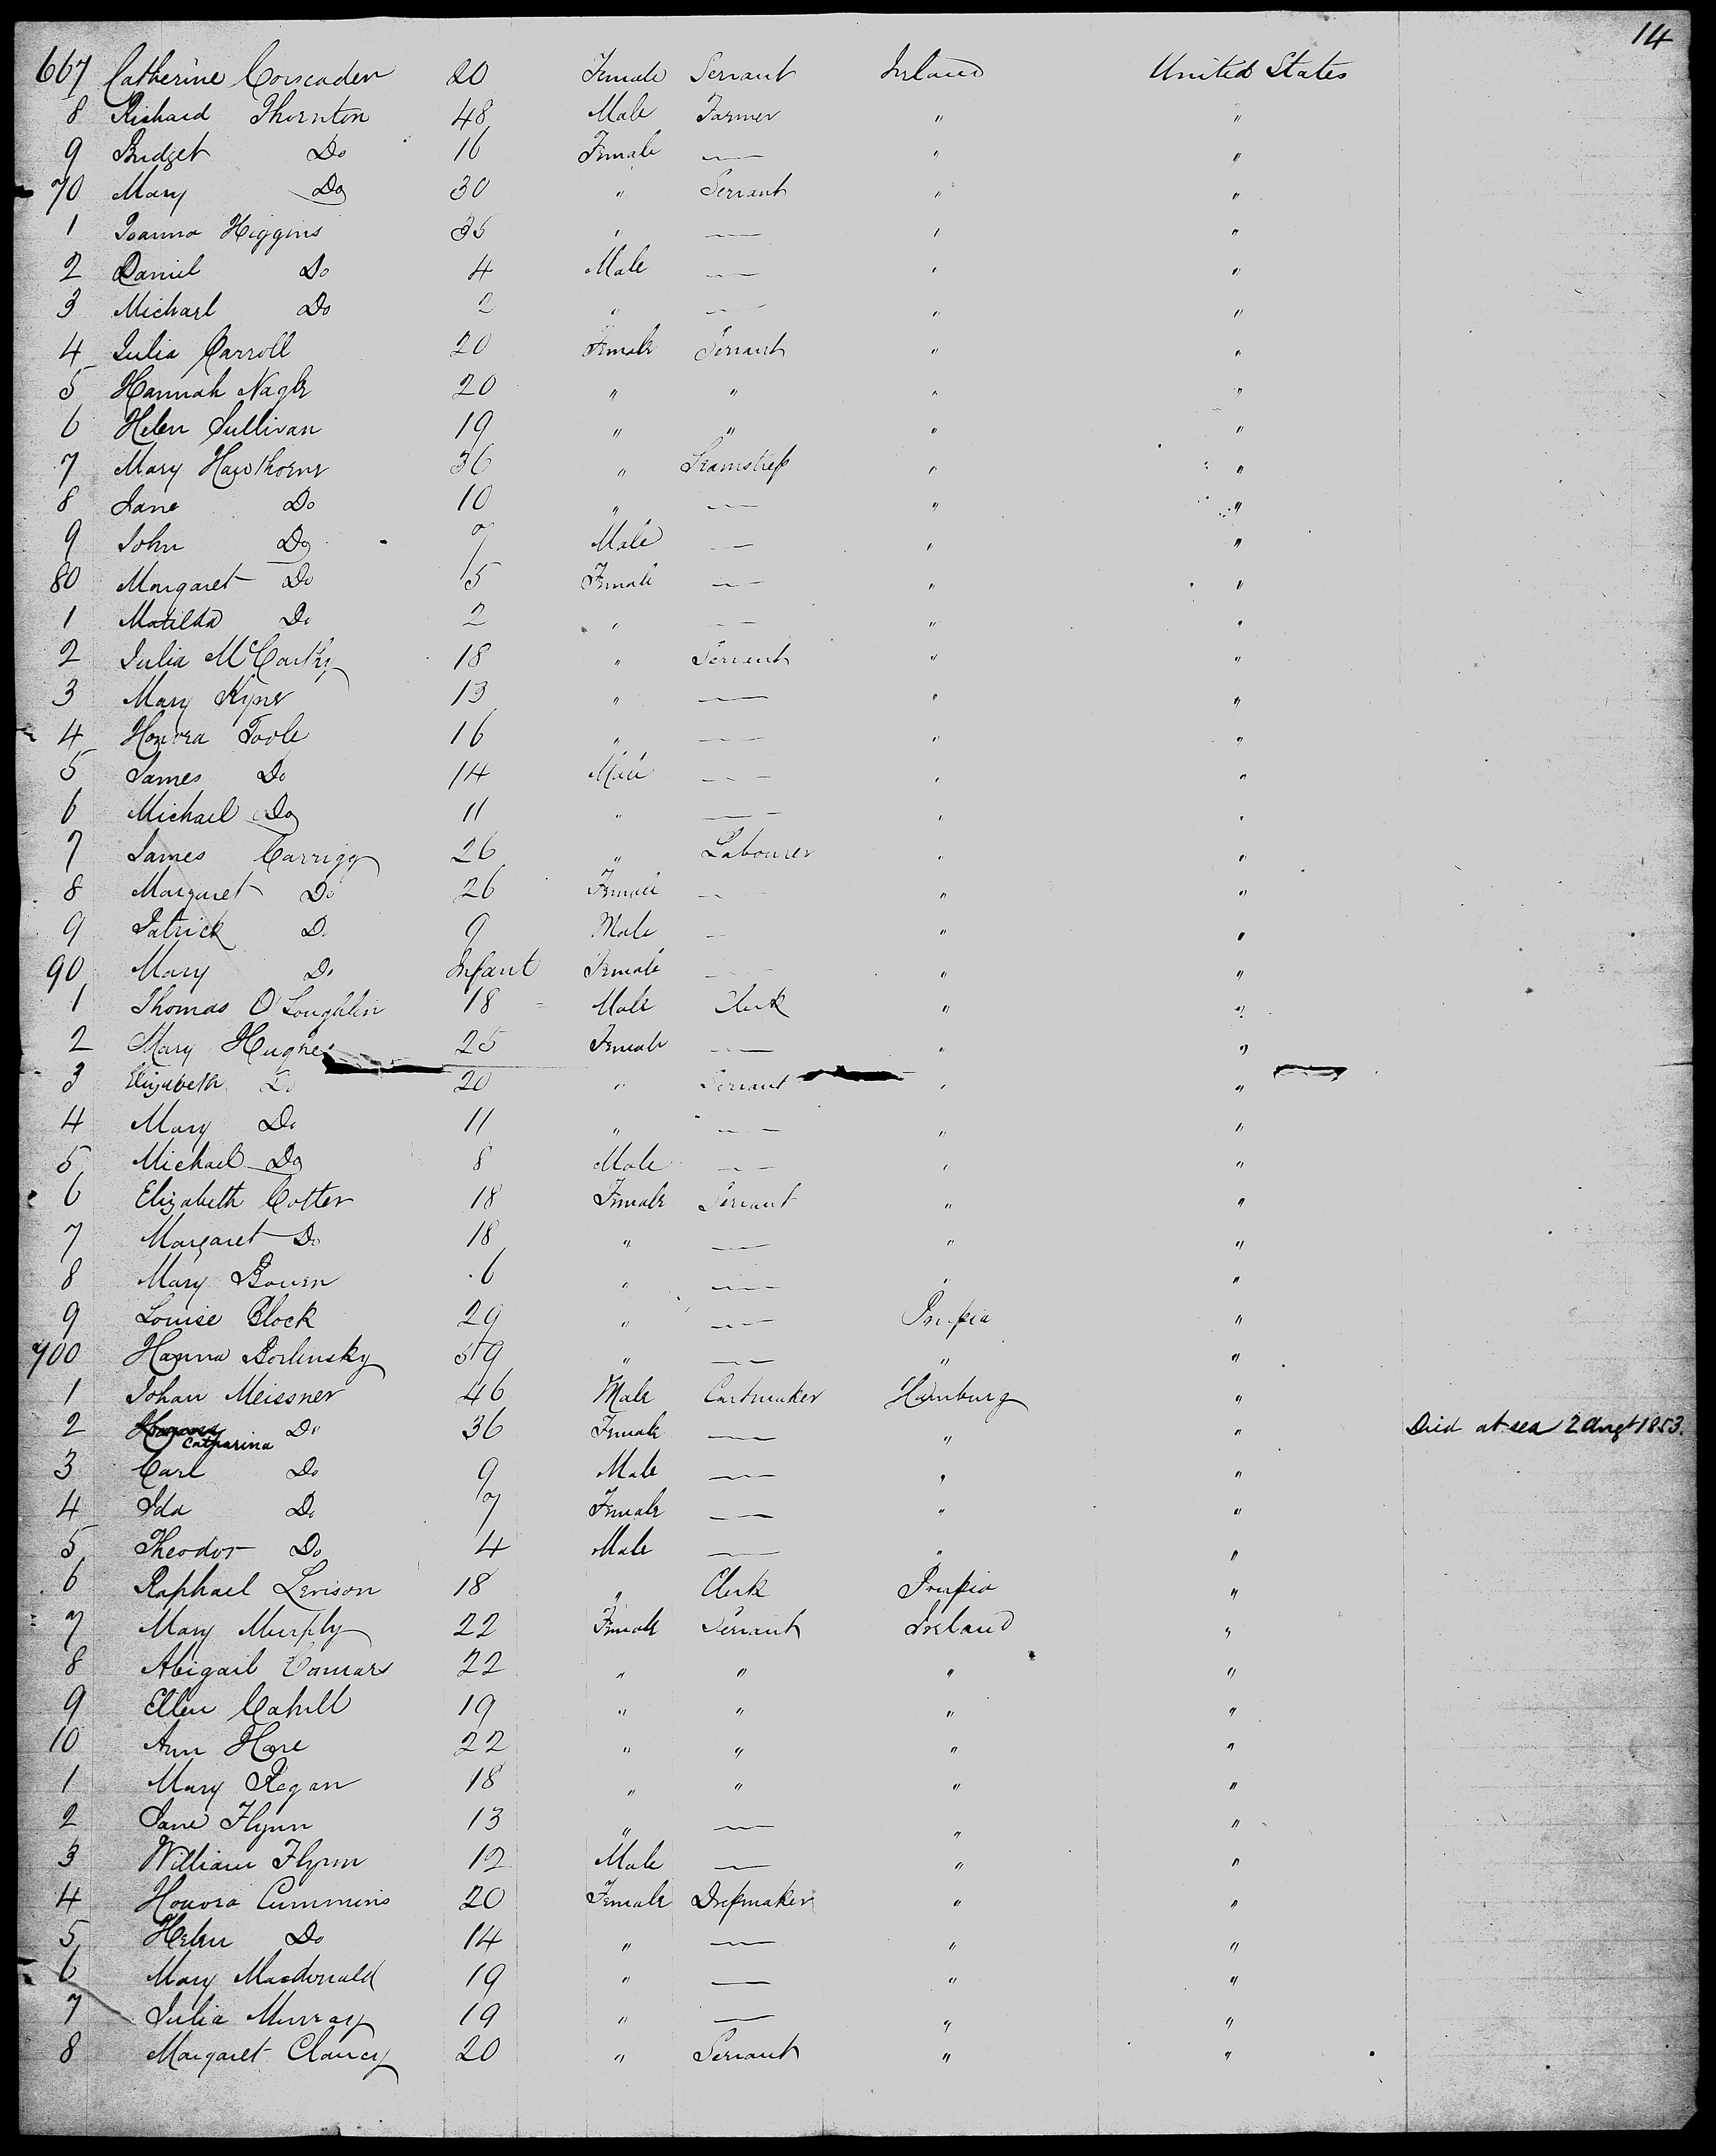 14
667 Catherine Corscaden 20 Female Servant Ireland United States
8 Richard Thornton 48 Male Farmer " "
9 Bridget Do 16 Female — " "
70 Mary Do 30 " Servant " "
1 Joanna Higgins 35 " — " "
2 Daniel Do 4 Male — " "
3 Michael Do 2 " — " "
4 Julia Carroll 20 Female Servant " "
5 Hannah Nagle 20 " " " "
6 Helen Sullivan 19 " " " "
7 Mary Hawthorne 36 " Seamstress " "
8 Jane Do 10 " — " "
9 John Do 7 Male — " "
80 Margaret Do 5 Female — " "
1 Matilda Do 2 " — " "
2 Julia McCarthy 18 " Servant " "
3 Mary Kyne 13 " — " "
4 Honora Toole 16 " — " "
5 James Do 14 Male — " "
6 Michael Do 11 " — " "
7 James Carrigg 26 " Labourer " "
8 Margaret Do 26 Female — " "
9 Patrick Do 9 Male — " "
90 Mary Do Infant Female — " "
1 Thomas O'Loughlin 18 Male Clerk " "
2 Mary Hughes 25 Female — " "
3 Elizabeth Do 20 " Servant " "
4 Mary Do 11 " — " "
5 Michael Do 8 Male — " "
6 Elizabeth Cotter 18 Female Servant " "
7 Margaret Do 18 " — " "
8 Mary Bowen 6 " — " "
9 Louise Block 29 " — Prussia "
700 Hanna Borlinsky 59 " — " "
1 Johan Meissner 46 Male Cartmaker Hamburg "
2 Catharina Do 36 Female — " " Died at sea 2 Augt 1853.
3 Carl Do 9 Male — " "
4 Ida Do 7 Female — " "
5 Theodor Do 4 Male — " "
6 Raphael Levison 18 " Clerk Prussia "
7 Mary Murphy 22 Female Servant Ireland "
8 Abigail 22 " " " "
9 Ellen Cahill 19 " " " "
10 Ann Hare 22 " " " "
1 Mary Regan 18 " " " "
2 Jane Flynn 13 " — " "
3 William Flynn 12 Male — " "
4 Honora Cummins 20 Female Dressmaker " "
5 Helen Do 14 " — " "
6 Mary Macdonald 19 " — " "
7 Julia Murray 19 " — " "
8 Margaret Clancy 20 " Servant " "